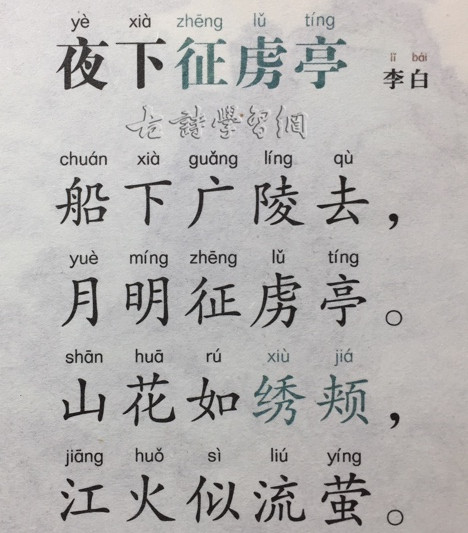 yè xià zhēng lǔ tíng
夜下征虏亭
lǐ bái
李白
古诗学习网
chuán xià guǎng líng qù
船下广陵去，
yuè míng zhēng lǔ tíng
月明征虏亭。
shān huā rú xiù jiá
山花如绣颊，
jiāng huǒ sì liú yíng
江火似流萤。